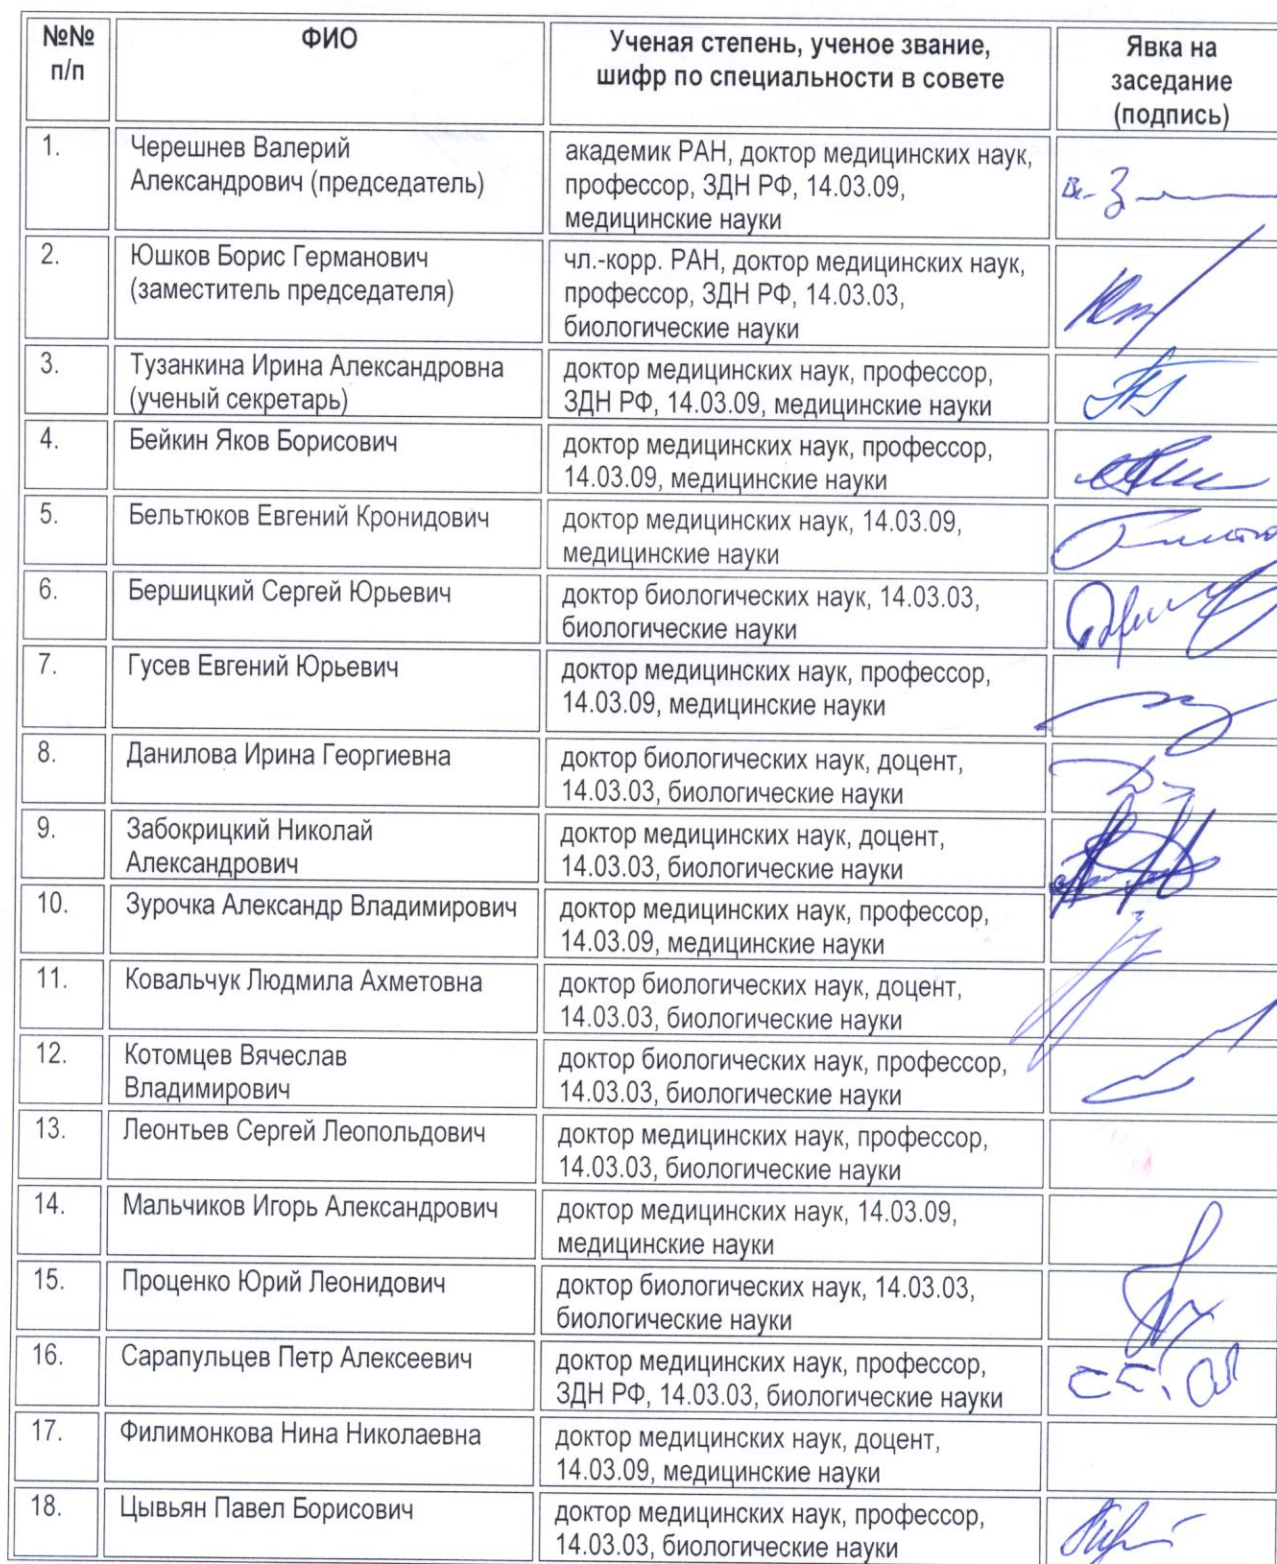 №№
п/п
ФИО
Ученая степень, ученое звание,
шифр по специальности в совете
Явка на
заседание
(подпись)
1.
Черешнев Валерий
Александрович (председатель)
академик РАН, доктор медицинских наук,
профессор, ЗДН РФ, 14.03.09,
медицинские науки
2.
Юшков Борис Германович
(заместитель председателя)
чл.-корр. РАН, доктор медицинских наук,
профессор, ЗДН РФ, 14.03.03,
биологические науки
3.
Тузанкина Ирина Александровна
(ученый секретарь)
доктор медицинских наук, профессор,
ЗДН РФ, 14.03.09, медицинские науки
4.
Бейкин Яков Борисович
доктор медицинских наук, профессор,
14.03.09, медицинские науки
5.
Бельтюков Евгений Кронидович
доктор медицинских наук, 14.03.09,
медицинские науки
6.
Бершицкий Сергей Юрьевич
доктор биологических наук, 14.03.03,
биологические науки
7.
Гусев Евгений Юрьевич
доктор медицинских наук, профессор,
14.03.09, медицинские науки
8.
Данилова Ирина Георгиевна
доктор биологических наук, доцент,
14.03.03, биологические науки
9.
Забокрицкий Николай
Александрович
доктор медицинских наук, доцент,
14.03.03, биологические науки
10.
Зурочка Александр Владимирович
доктор медицинских наук, профессор,
14.03.09, медицинские науки
11.
Ковальчук Людмила Ахметовна
доктор биологических наук, доцент,
14.03.03, биологические науки
12.
Котомцев Вячеслав
Владимирович
доктор биологических наук, профессор,
14.03.03, биологические науки
13.
Леонтьев Сергей Леопольдович
доктор медицинских наук, профессор,
14.03.03, биологические науки
14.
Мальчиков Игорь Александрович
доктор медицинских наук, 14.03.09,
медицинские науки
15.
Проценко Юрий Леонидович
доктор биологических наук, 14.03.03,
биологические науки
16.
Сарапульцев Петр Алексеевич
доктор медицинских наук, профессор,
ЗДН РФ, 14.03.03, биологические науки
17.
Филимонкова Нина Николаевна
доктор медицинских наук, доцент,
14.03.09, медицинские науки
18.
Цывьян Павел Борисович
доктор медицинских наук, профессор,
14.03.03, биологические науки